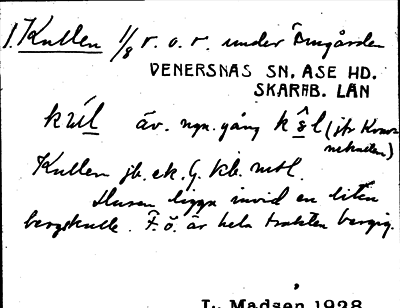 1. Kullen 1/8 r. o. r. under Åmgården
VENERSNAS SN. ASE HD.
SKARAB. LÄN
äv. ngn. gång
Kullen jb. ek. G. kb. mtl.
Husen ligga invid en liten
bergskulle. F. ö. är hela trakten bergig.
L. Madsen 1928